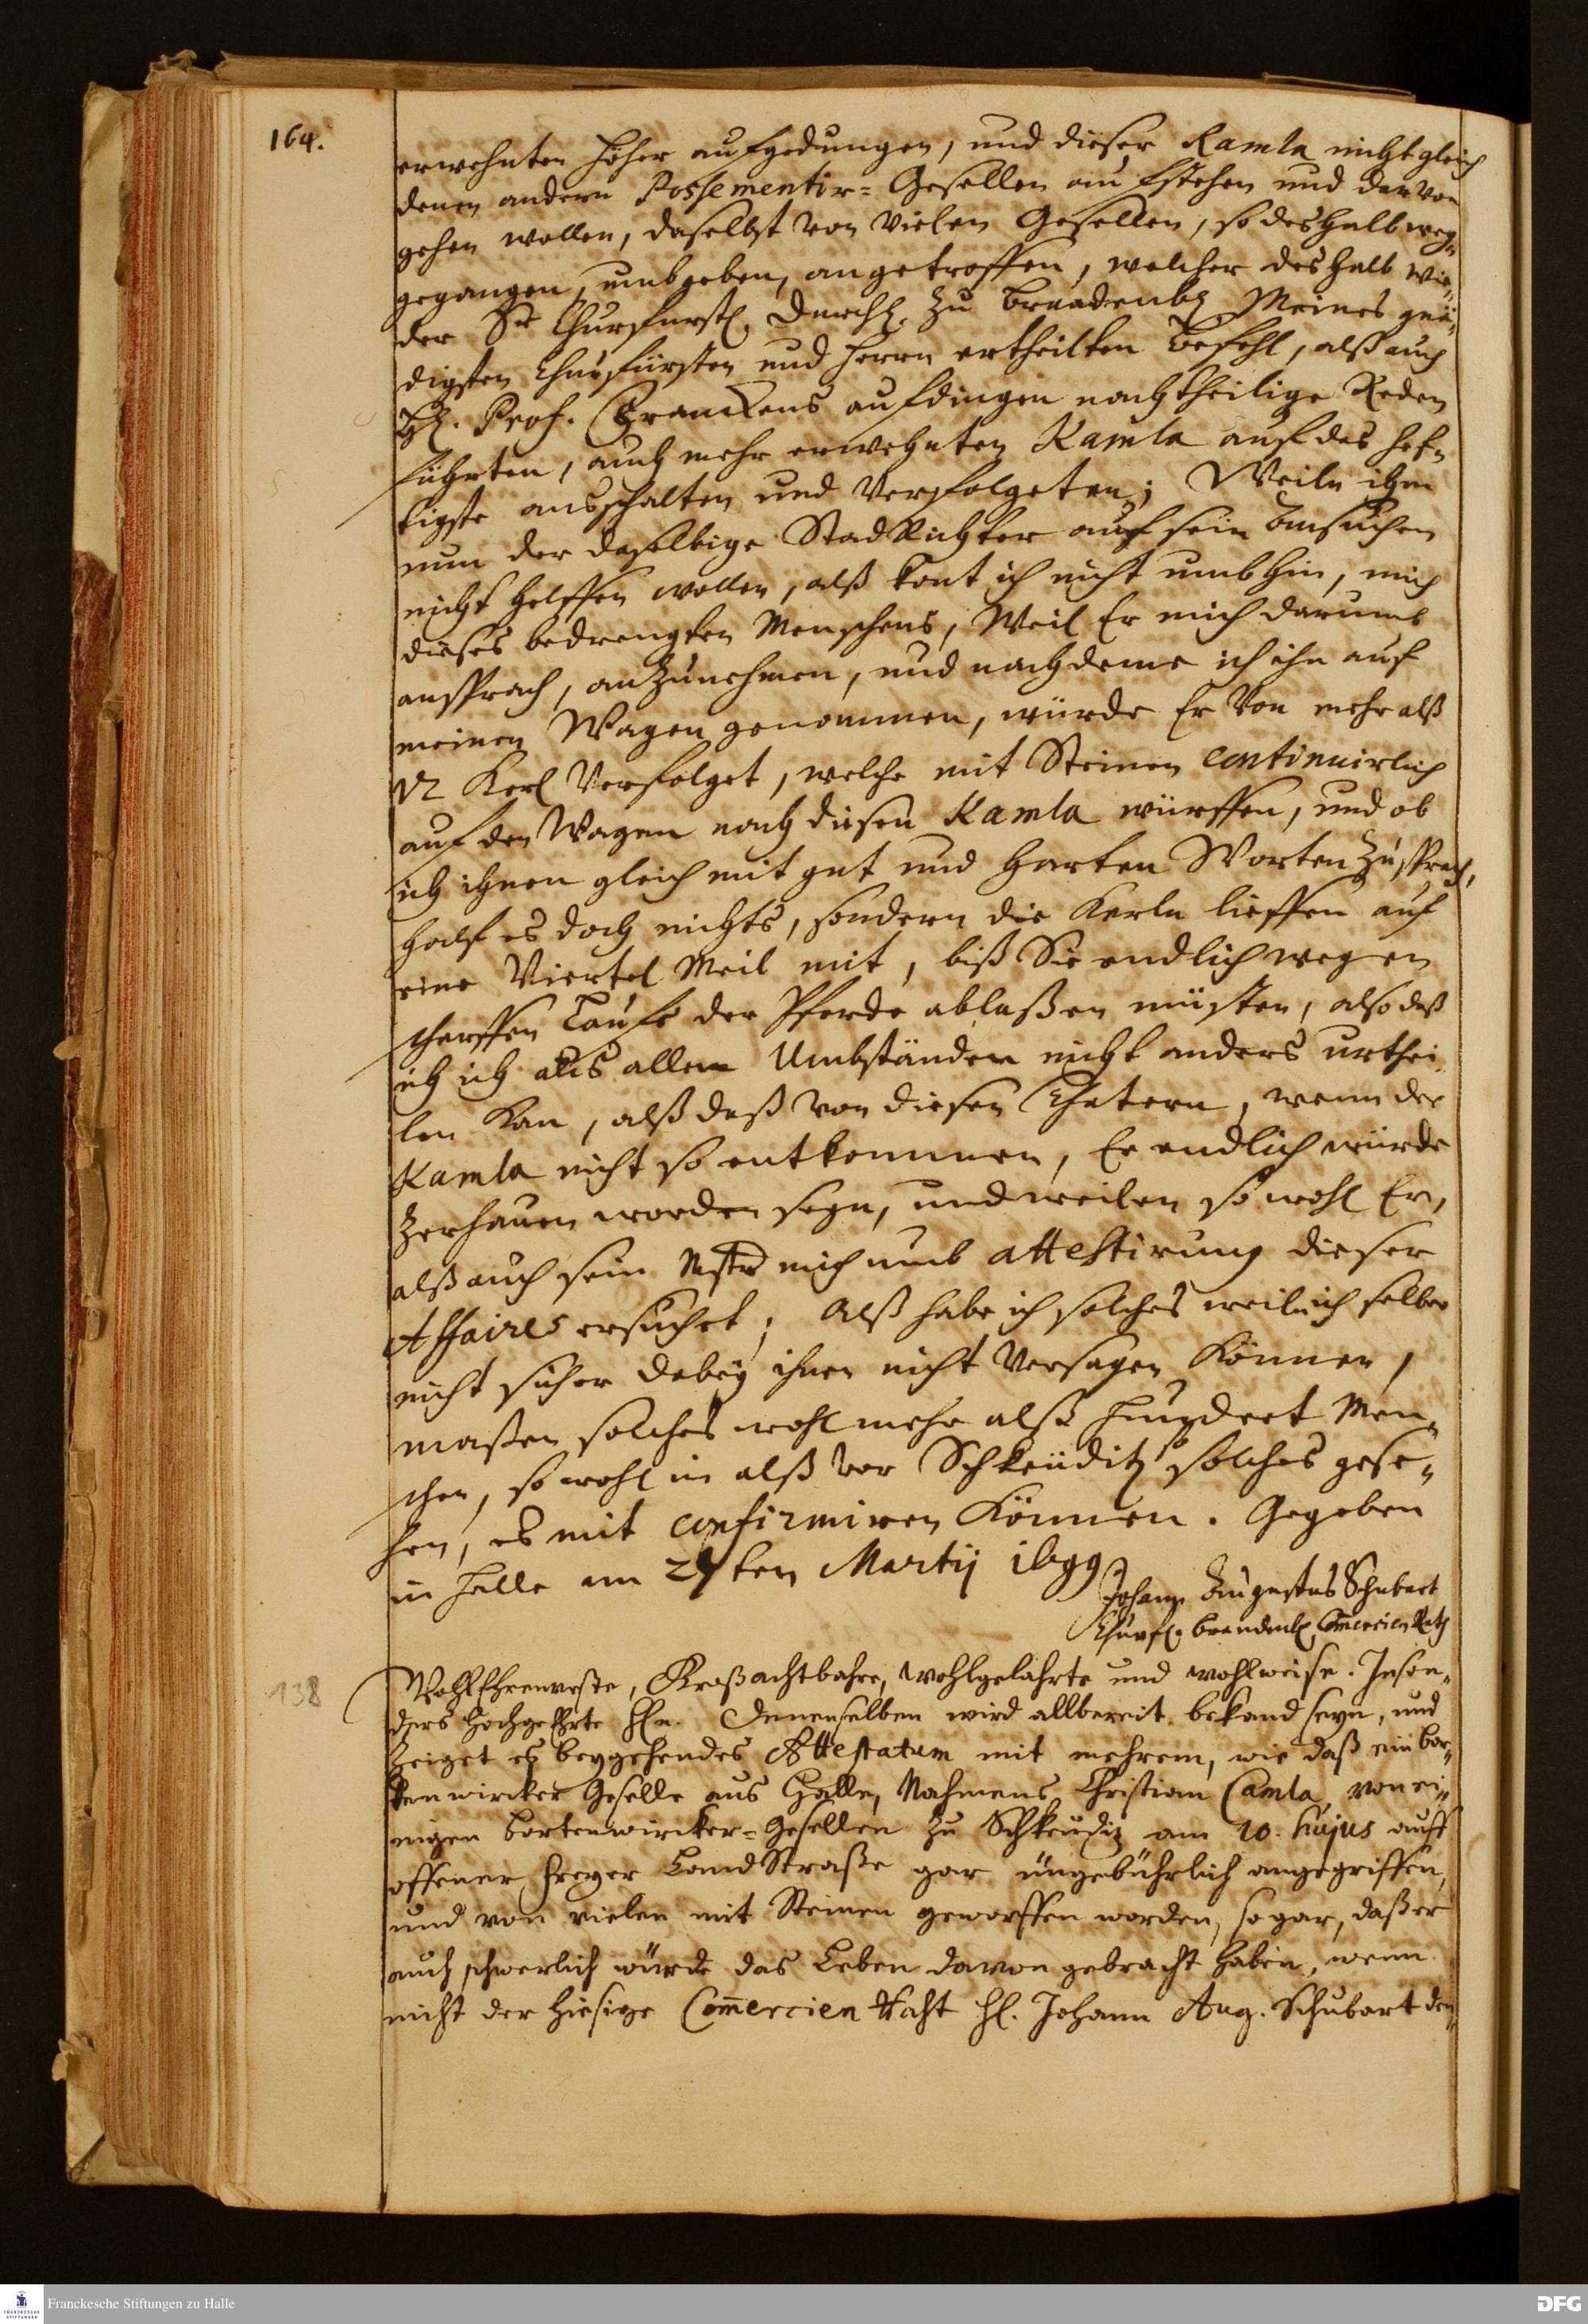 164.
erwehnten Höher aufgedungen, und dieser Kamla nicht gleich
denen andern Possementir= Gesellen aufstehen und darvon
gehen wollen, daselbst von vielen Gesellen, so deshalb weg¬
gegangen, umbgeben, angetroffen, welcher deshalb wie¬
der Sr Churfürstl. Durchl. zu Brandenbl Meines gnä¬
digsten Churfürsten und Herrn ertheilten Befehl, alß auch
Hl. Prof. Franckens aufdingen nachtheilige Reden
führten, auch mehr erwehnten Kamla auf das hef¬
tigste ausschalten und Verfolgeten; Weiln ihm
nun der daselbige StadRichter auf sein Ansuchen
nicht helffen wollen, alß kont ich nicht umbhin, mich
dieses bedrengten Menschens, Weil Er mich darumb
ansprach, anzunehmen, und nachdeme ich ihn auf
meinen Wagen genommen, würde Er Von mehr alß
12 Kerl Verfolget, welche mit Steinen continuirlich
auf den Wagen nach diesen Kamla würffen, und ob
ich ihnen gleich mit gut und harten Worten zusprach,
half es doch nichts, sondern die Kerln lieffen auf
eine Viertel Meil mit, biß Sie endlich wegen
scharffen Laufs der Pferde ablaßen müsten, also daß
ich ich aus allen Umbständen nicht anders urthei
len kan, alß daß von diesen Thätern, wenn der
Kamla nicht so entkommen, Er endlich würde
zerhauen worden seyn, und weilen so wohl Er,
alß auch sein Mstr mich umb attestirung dieser
Affaires ersuchet; Alß habe ich solches weil ich selber
nicht sicher dabey ihnen nicht Versagen können,
maßen solches wohl mehr alß hundert Men¬
schen, so wohl in alß vor Schkeuditz solches gese¬
hen, es mit confirmiren können. Gegeben
in Halle am ten Martij 1699
Johann Augustus Schubart
Churfl. Brandenbl. Commercien Rath
138
WohlEhrenveste, Großachtbahre, wohlgelahrte und wohlweise. Inson¬
ders Hochgeehrte Hln. Denenselben wird allbereit bekand seyn, und
zeiget es beygehendes Attestatum mit mehrem, wie daß ein bor¬
tenwircker Geselle aus Halle, Nahmens Christian Camla, von ei¬
nigen bortenwircker=Gesellen zu Schkeudiz am 20. hujus auff
offener freyer LandStraße gar ungebührlich angegriffen,
und von vielen mit Steinen geworffen worden, so gar, daß er
auch schwerlich würde das Leben davon gebracht haben, wenn
nicht der hiesige Commercien Raht Hl. Johann Aug. Schubart den¬
FRANCKESCHE STIFTUNGEN
Franckesche Stiftungen zu Halle
DFG